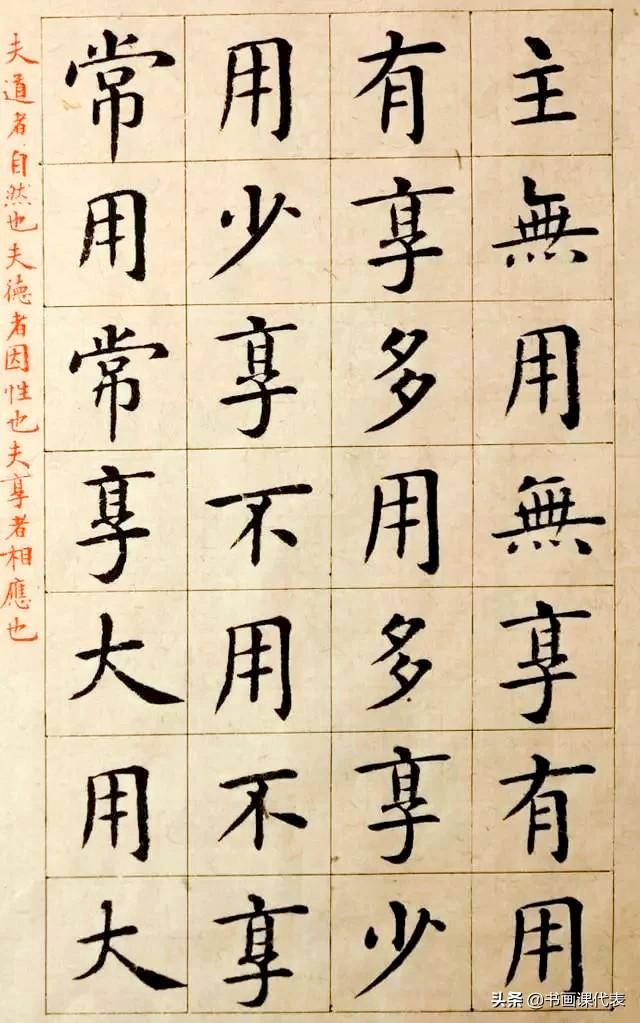 主無用無享有用
有享多用多享少
用少享不用不享
常用常享大用大
夫道者自然也夫德者因性也夫享者相應也
头条 @书画课代表